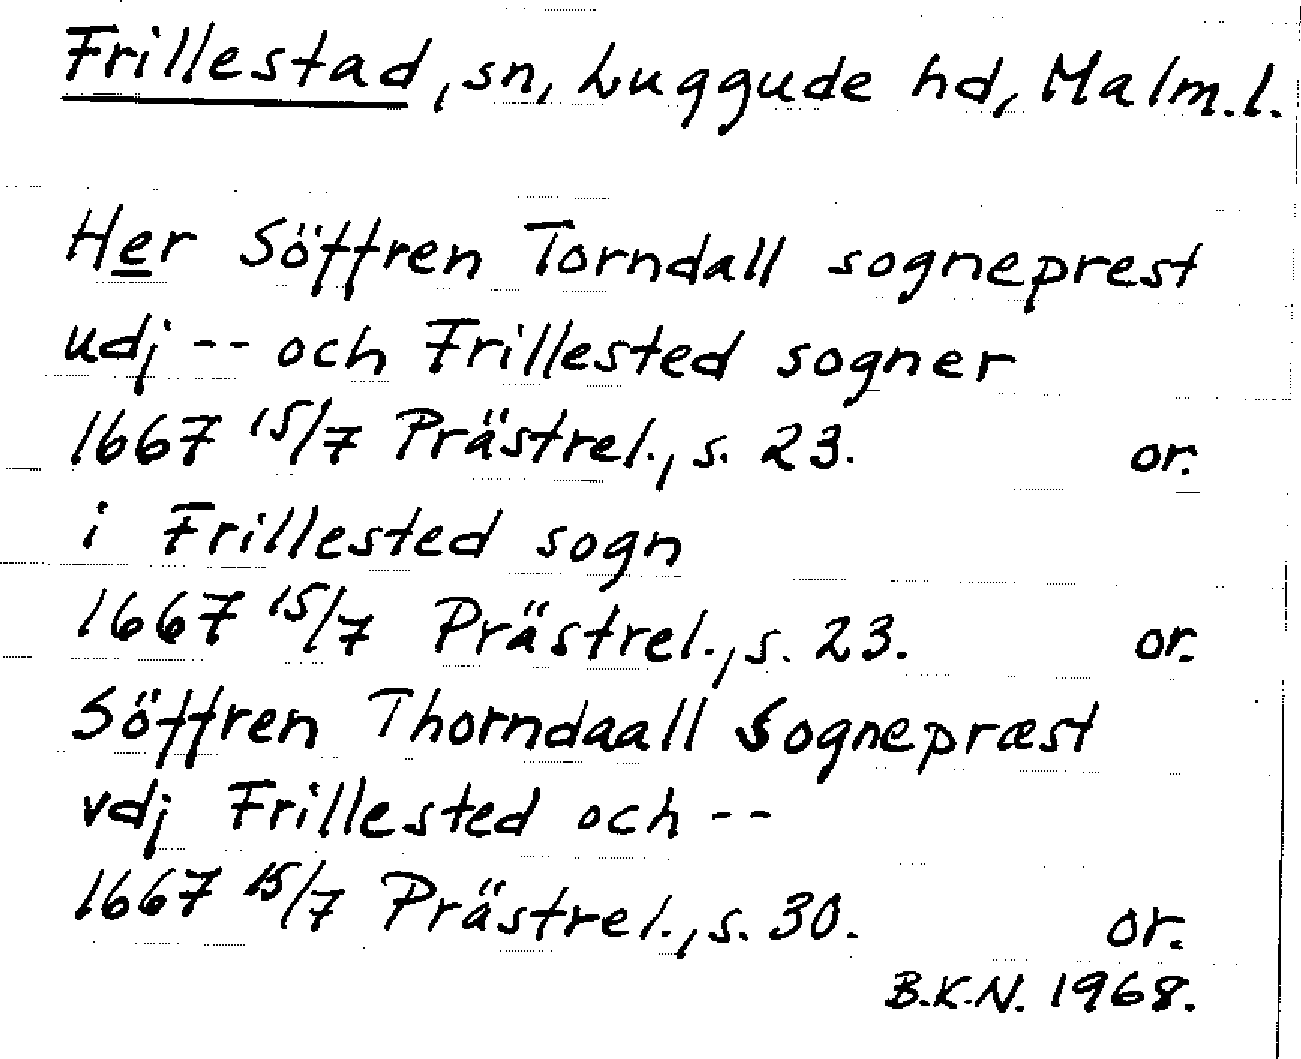 Frillestad, sn, Luggude hd, Malm.l.
Her Söffren Torndall sogneprest
udj -- och Frillested sogner
1667 15/7 Prästrel., s. 23. or.
i Frillested sogn
1667 15/7 Prästrel., s. 23. or.
Söffren Thorndaall Sognepræst
vdj Frillested och --
1667 15/7 Prästrel., s. 30. or.
B.K.N. 1968.